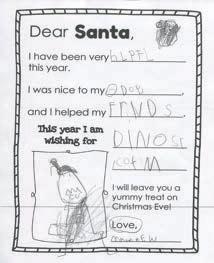 Dear Santa,
I have been very hLPFL
this year.
I was nice to my
and I helped my FRNDS.
This year I am
wishing for
DINOSr
I will leave you a
yummy treat on
Christmas Eve!
Love,